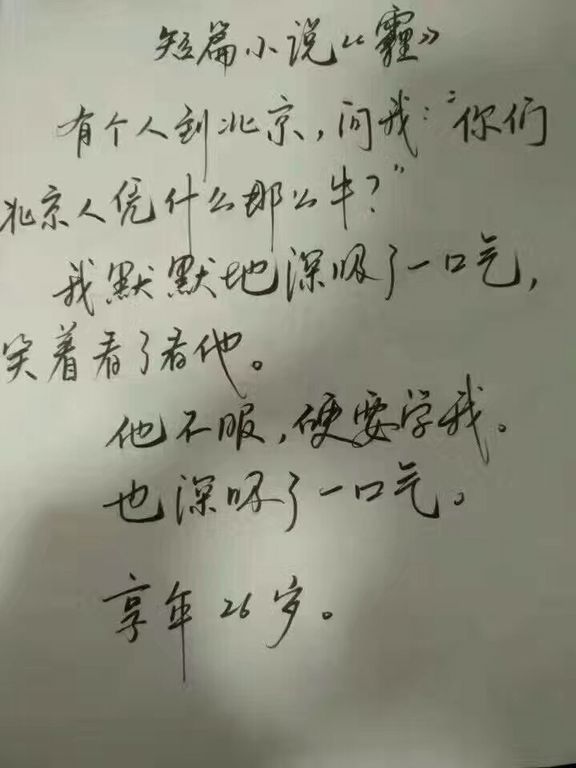 短篇小说《霾》
有个人到北京，问我：“你们
北京人凭什么那么牛？”
我默默地深吸了一口气，
笑着看了看他。
他不服，硬要学我。
也深吸了一口气。
享年26岁。